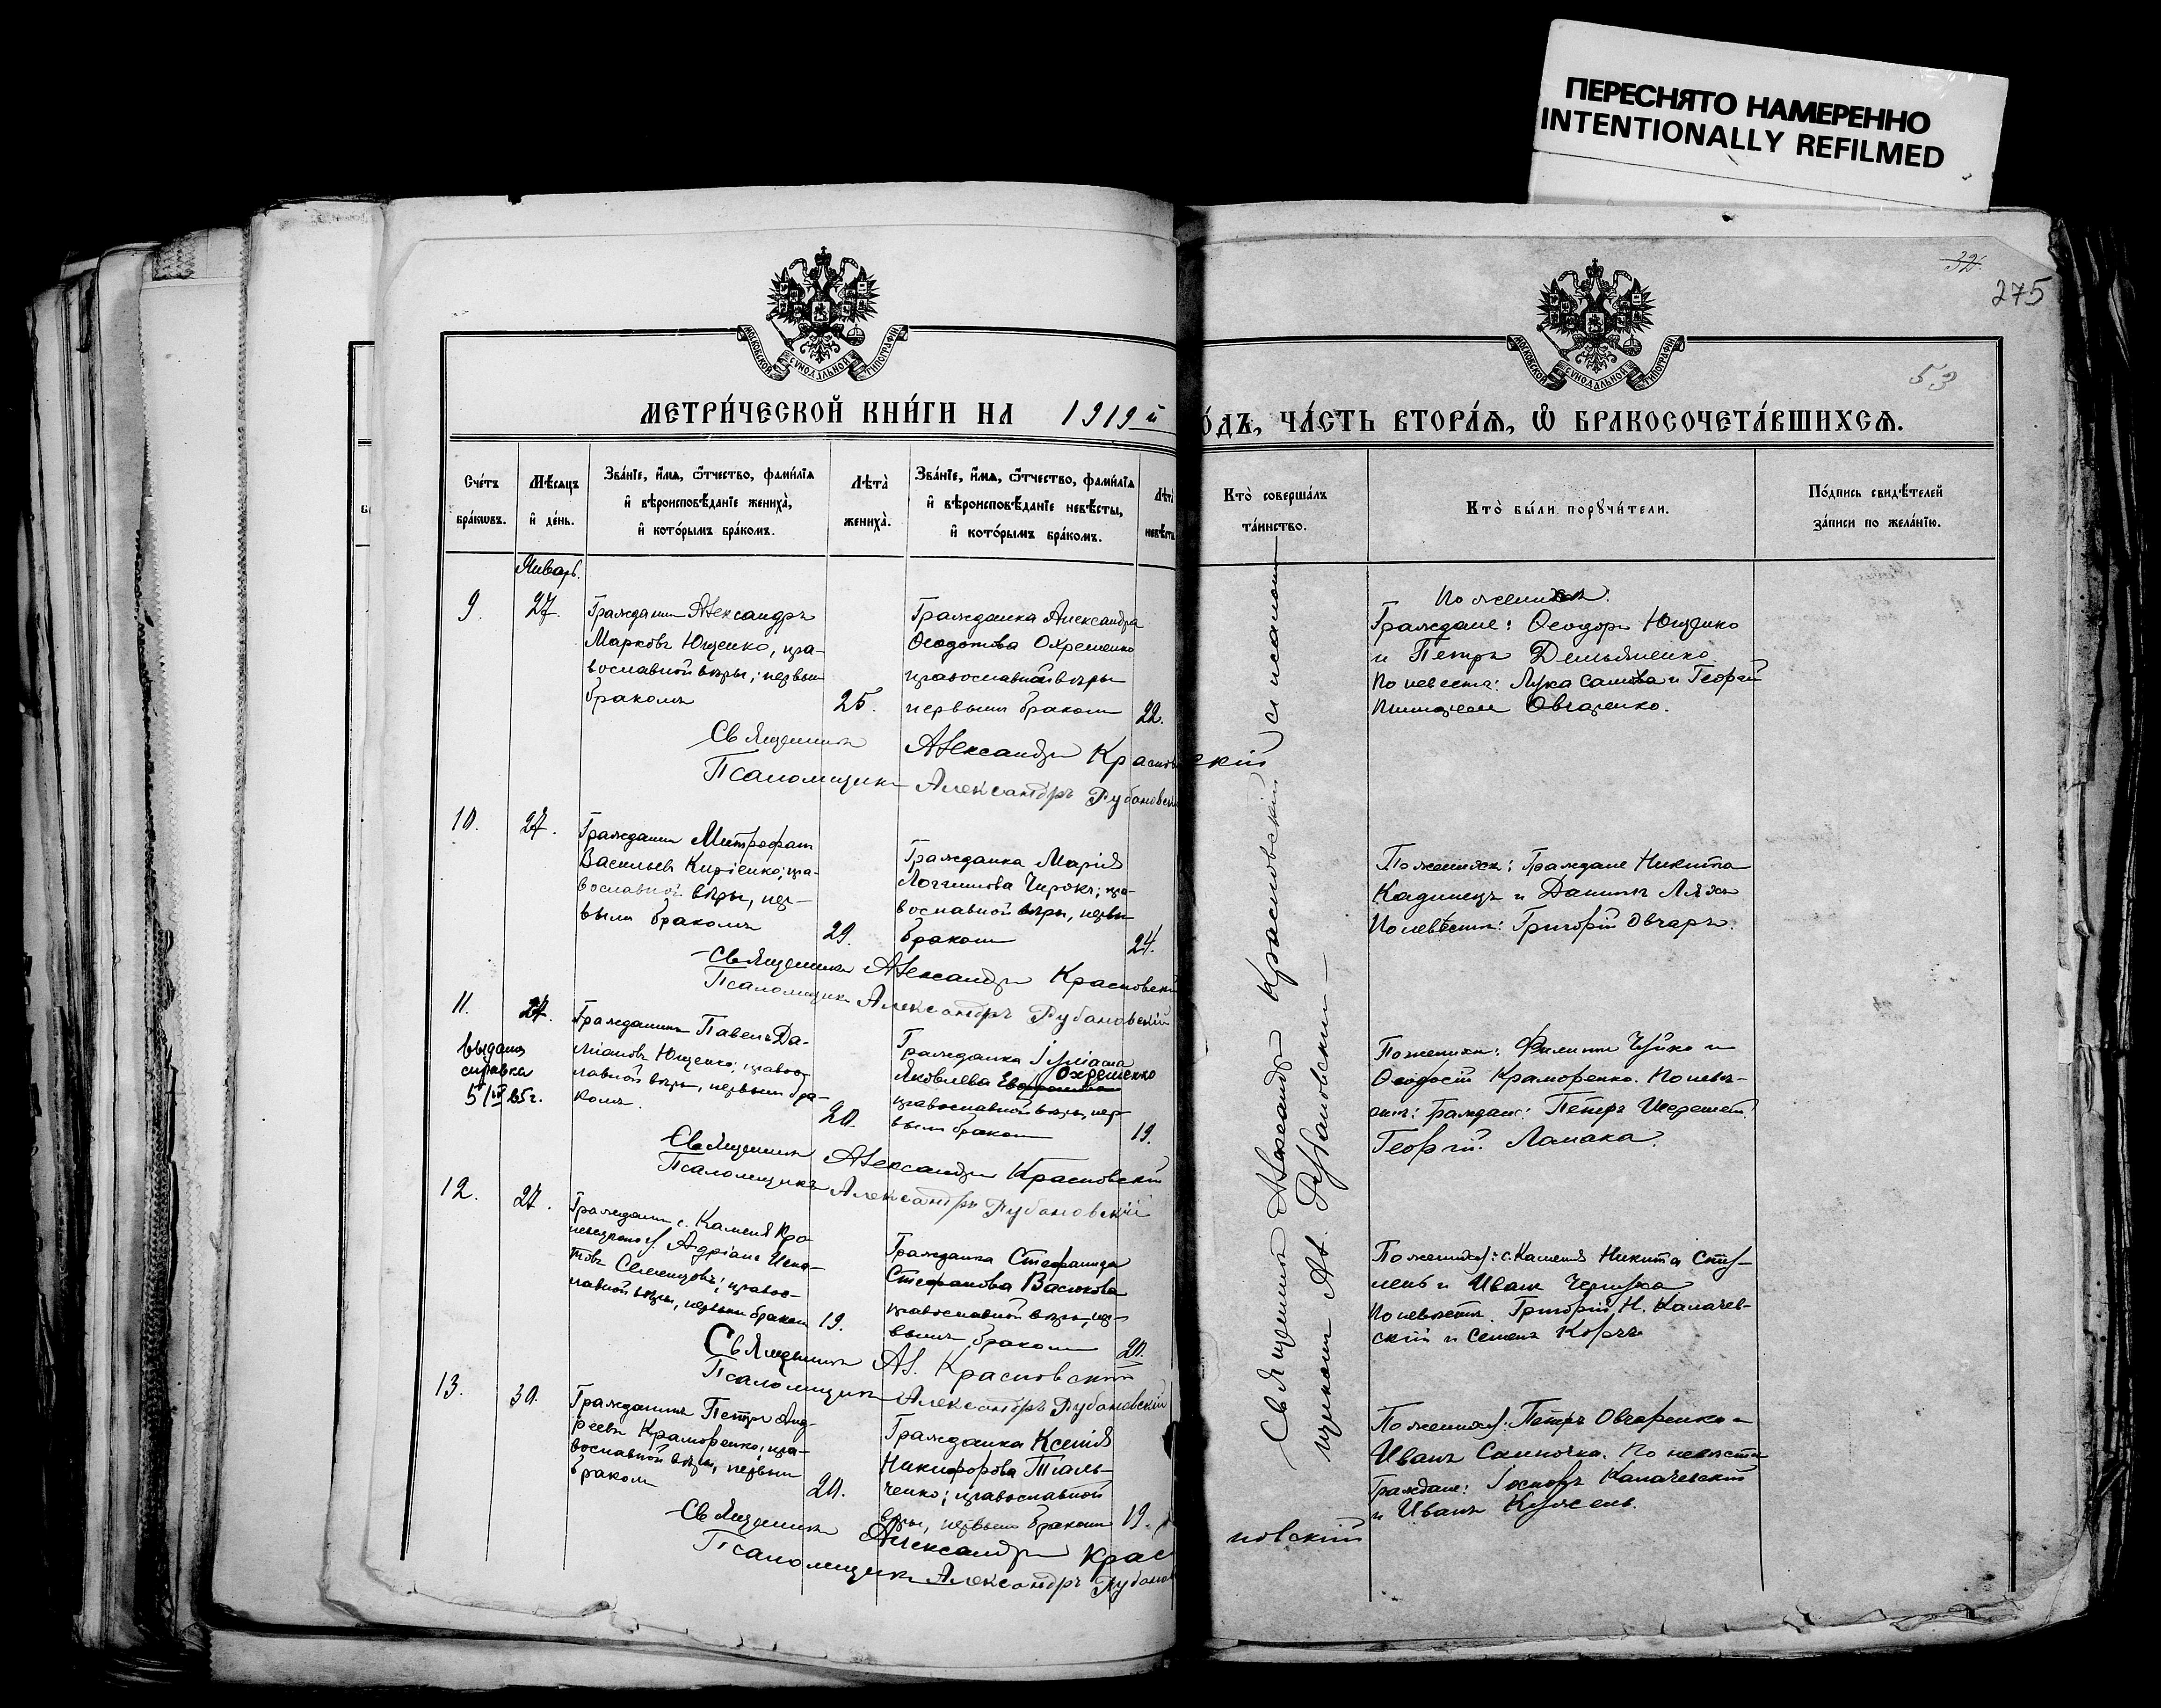 ПЕРЕСНЯТО НАМЕРЕННО
INTENTIONALLY REFILMED
32.
275
53
МОСКОВСКОЙ СѴНОДАЛЬНОЙ ТИПОГРАФІИ
МОСКОВСКОЙ СѴНОДАЛЬНОЙ ТИПОГРАФІИ
МЕТРИ́ЧЕСКОЙ КНИ́ГИ НА 1919 й
О́ДЪ, ЧА́СТЬ ВТОРА́Ѧ, Ѽ БРАКОСОЧЕТА́ВШИХСѦ.
Сче́тъ бра́кѡвъ.
Мѣ́сѧцъ и҆ де́нь.
Зва́нїе, и҆́мѧ, ѻ҆́тчество, фами́лїѧ
и҆ вѣроисповѣ́данїе жениха̀,
и҆ кото́рымъ бра́комъ.
Лѣта̀ жениха̀.
Зва́нїе, и҆́мѧ, ѻ҆́тчество, фами́лїѧ
и҆ вѣроисповѣ́данїе невѣ́сты,
и҆ кото́рымъ бра́комъ.
Лѣта̀ невѣ́ст
Кто̀ соверша́лъ
та́инство.
Кто̀ бы́ли порꙋчи́тели.
По́дпись свидѣ́телей
за́писи по жела́нїю.
Январь.
9.
27.
Гражданин Александръ
Марковъ Ющенко, пра-
вославной вѣры, первым
бракомъ
25.
Гражданка Александра
Ѳеодотова Охрименко
православной вѣры
первымъ браком
22.
По женихѣ.
Граждане: Ѳеодоръ Ющенко
и Петръ Демьяненко
По невесте: Лука и Георгій
Овчаренко.
Священникъ Александръ Красновскій
Псаломщикъ Александръ Рубановскі
10.
27.
Гражданин Митрофанъ
Васильевъ Киріенко; пра-
вославной вѣры, пер-
вымъ бракомъ
29.
Гражданка Марія
Логгинова Чирокъ; пра-
вославной вѣры, первы
бракомъ
24.
По женихѣ: Граждане Никита
Кадинецъ и Даніилъ Ляхъ
По невѣсте: Григорій Овчаръ.
Священникъ Александръ Красновскі
Псаломщикъ Александръ Рубановскій
11.
27.
выдана
справка
5/III 25 г.
Гражданинъ Павелъ Да-
міановъ Ющенко; правос-
лавной вѣры, первымъ бра-
комъ.
20.
Гражданка Іуліана
Яковлева Охрименко
православной вѣры, пер-
вымъ браком
19.
По женихѣ: Филиппъ Чуйко и
Ѳеодосій Краморенко. По невѣ-
стѣ: Граждане: Петръ Шеремет.
Георгій Ломака.
Священникъ Александръ Красновскій
Псаломщикъ Александръ Рубановскій
12.
27.
Гражданин с. Каменя Кро-
левецкого у. Адріанъ Игна-
товъ Селенцовъ; правос-
лавной вѣры, первымъ браком
19.
Гражданка Стефанида
Стефанова Васюкова
православной вѣры, пер-
вымъ браком
20.
По женихѣ: с. Каменя Никита Сту-
пень и Иванъ Чернуха
По невѣсте. Григорій Н. Калачев-
скій и Семенъ Коржъ
Священникъ Ал. Красновскій
Псаломщикъ Александръ Рубановскій
13.
30.
Гражданинъ Петръ Анд-
реевъ Краморенко; пра-
вославной вѣры, первым
браком
20.
Гражданка Ксенія
Никифорова Таль-
ченко; православной
вѣры, первымъ браком
19.
По женихѣ: Петръ Овчаренко и
Иванъ Самночка. По невѣсте
Граждане: Іосифъ Калачевскій
и Иванъ Кужель.
Священникъ Александръ Крас
новскій
Псаломщикъ Александръ Рубанов
Священникъ Александръ Красновскій съ псалом
щикомъ Ал. Рубановским